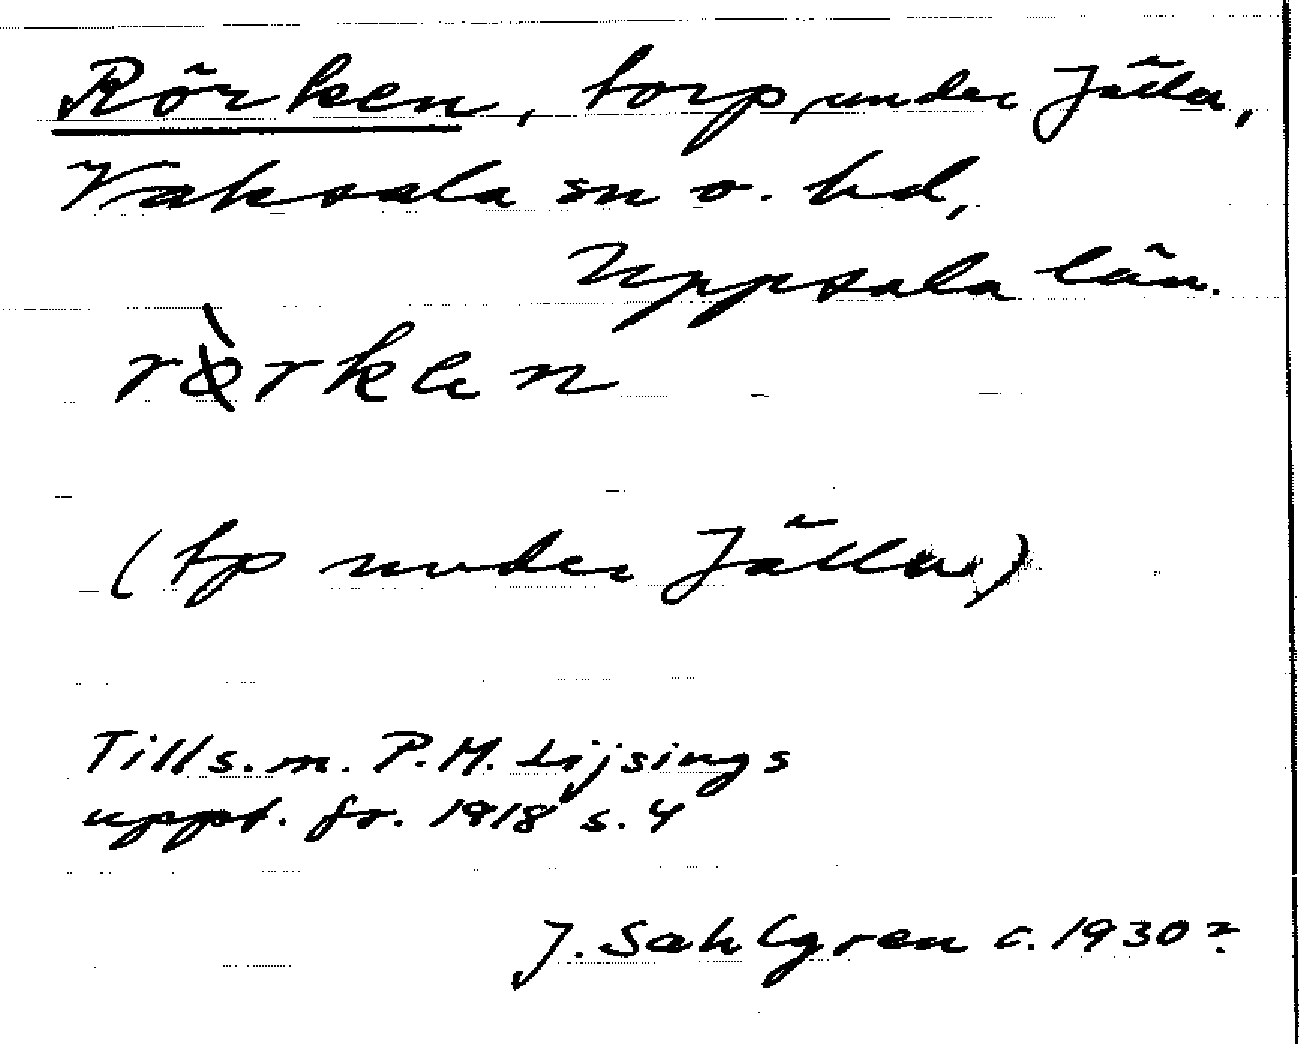 Rörken, torp under Jälla,
Vaksala sn o. hd,
Uppsala län.
rö̀rkен
(tp under Jälla)
Tills. m. P.M. Lijsings
uppt. fr. 1918 s. 4
J. Sahlgren c. 1930?